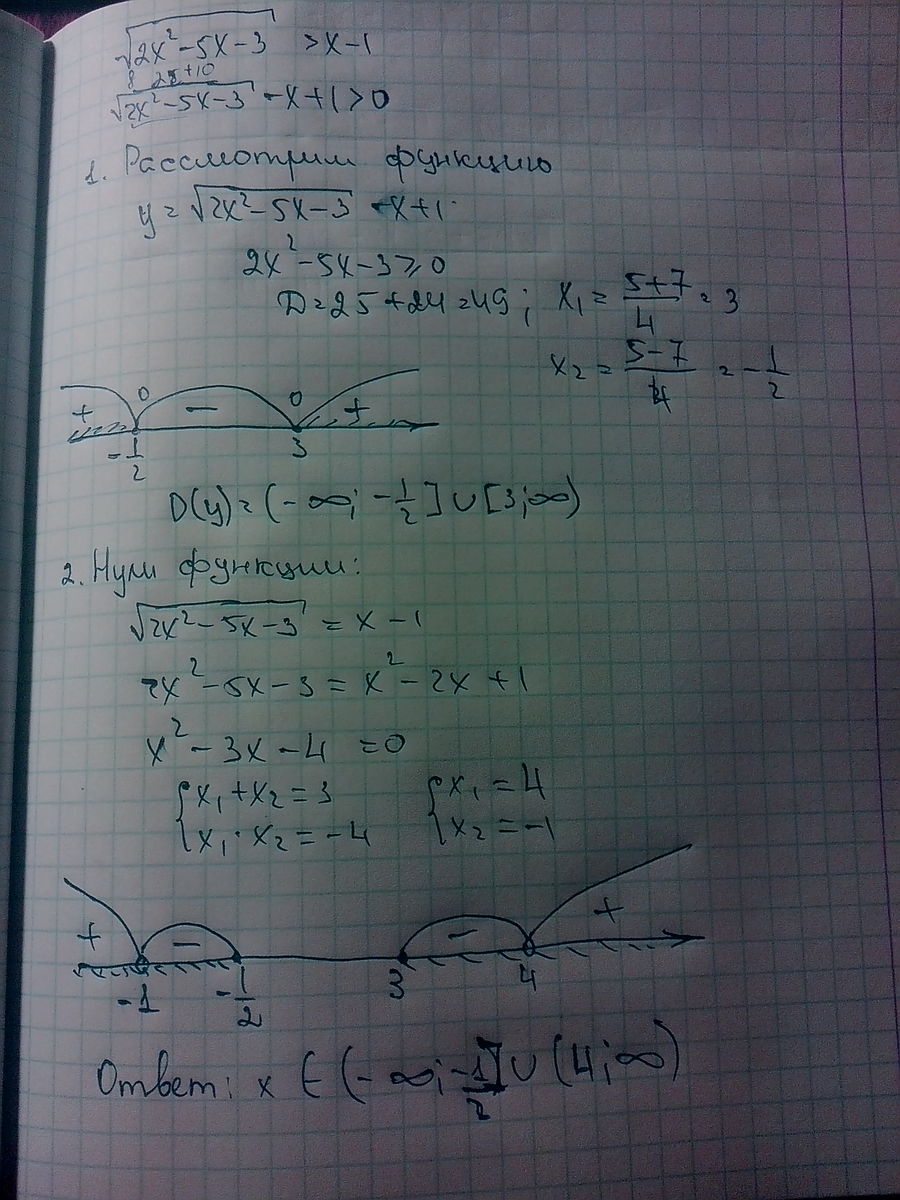 √(2x²-5x-3) > x-1
√(2x²-5x-3) -x+1>0
1. Рассмотрим функцию
y = √(2x²-5x-3) -x+1
2x²-5x-3⩾0
D=25+24=49; x₁ = (5+7)/4 = 3
x₂ = (5-7)/4 = -1/2
0 0
+ - +
-1/2 3
D(y)=(-∞; -1/2]∪[3;∞)
2. Нули функции:
√(2x²-5x-3) = x-1
2x²-5x-3 = x²-2x+1
x²-3x-4 =0
{x₁+x₂=3 {x₁=4
{x₁·x₂=-4 {x₂=-1
+ - - +
-1 -1/2 3 4
Ответ: x ∈ (-∞; -1/2]∪(4;∞)